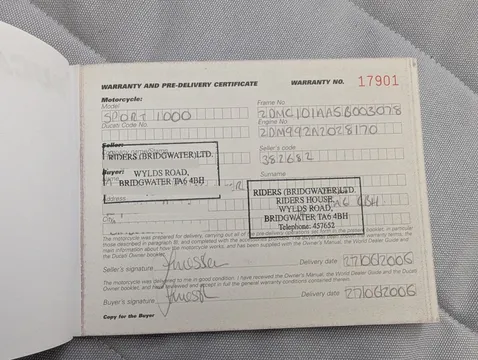 WARRANTY AND PRE-DELIVERY CERTIFICATE WARRANTY NO. 17901
Motorcycle:
Model
SPORT 1000
Frame No.
ZDMC101AA5B003078
Ducati Code No.
Engine No.
ZDM992A2028170
Seller:
Company name/Name
Seller's code
382682
RIDERS (BRIDGWATER) LTD.
WYLDS ROAD,
BRIDGWATER TA6 4BH
Buyer:
Surname
Address
RIDERS (BRIDGWATER) LTD.
RIDERS HOUSE,
WYLDS ROAD,
BRIDGWATER TA6 4BH
Telephone: 457652
The motorcycle was prepared for delivery, carrying out all of the pre-delivery operations set forth in the present booklet, in particular
those described in paragraph B), and completed with the
main information about how the motorcycle works; and has been supplied with the Owner's Manual, the World Dealer Guide and
the Ducati Owner booklet.
Seller's signature Delivery date 27/06/2006
The motorcycle was delivered to me in good condition. I have received the Owner's Manual, the World Dealer Guide and the Ducati
Owner booklet, and have reviewed and accept in full the general warranty conditions contained therein.
Buyer's signature Delivery date 27/06/2006
Copy for the Buyer